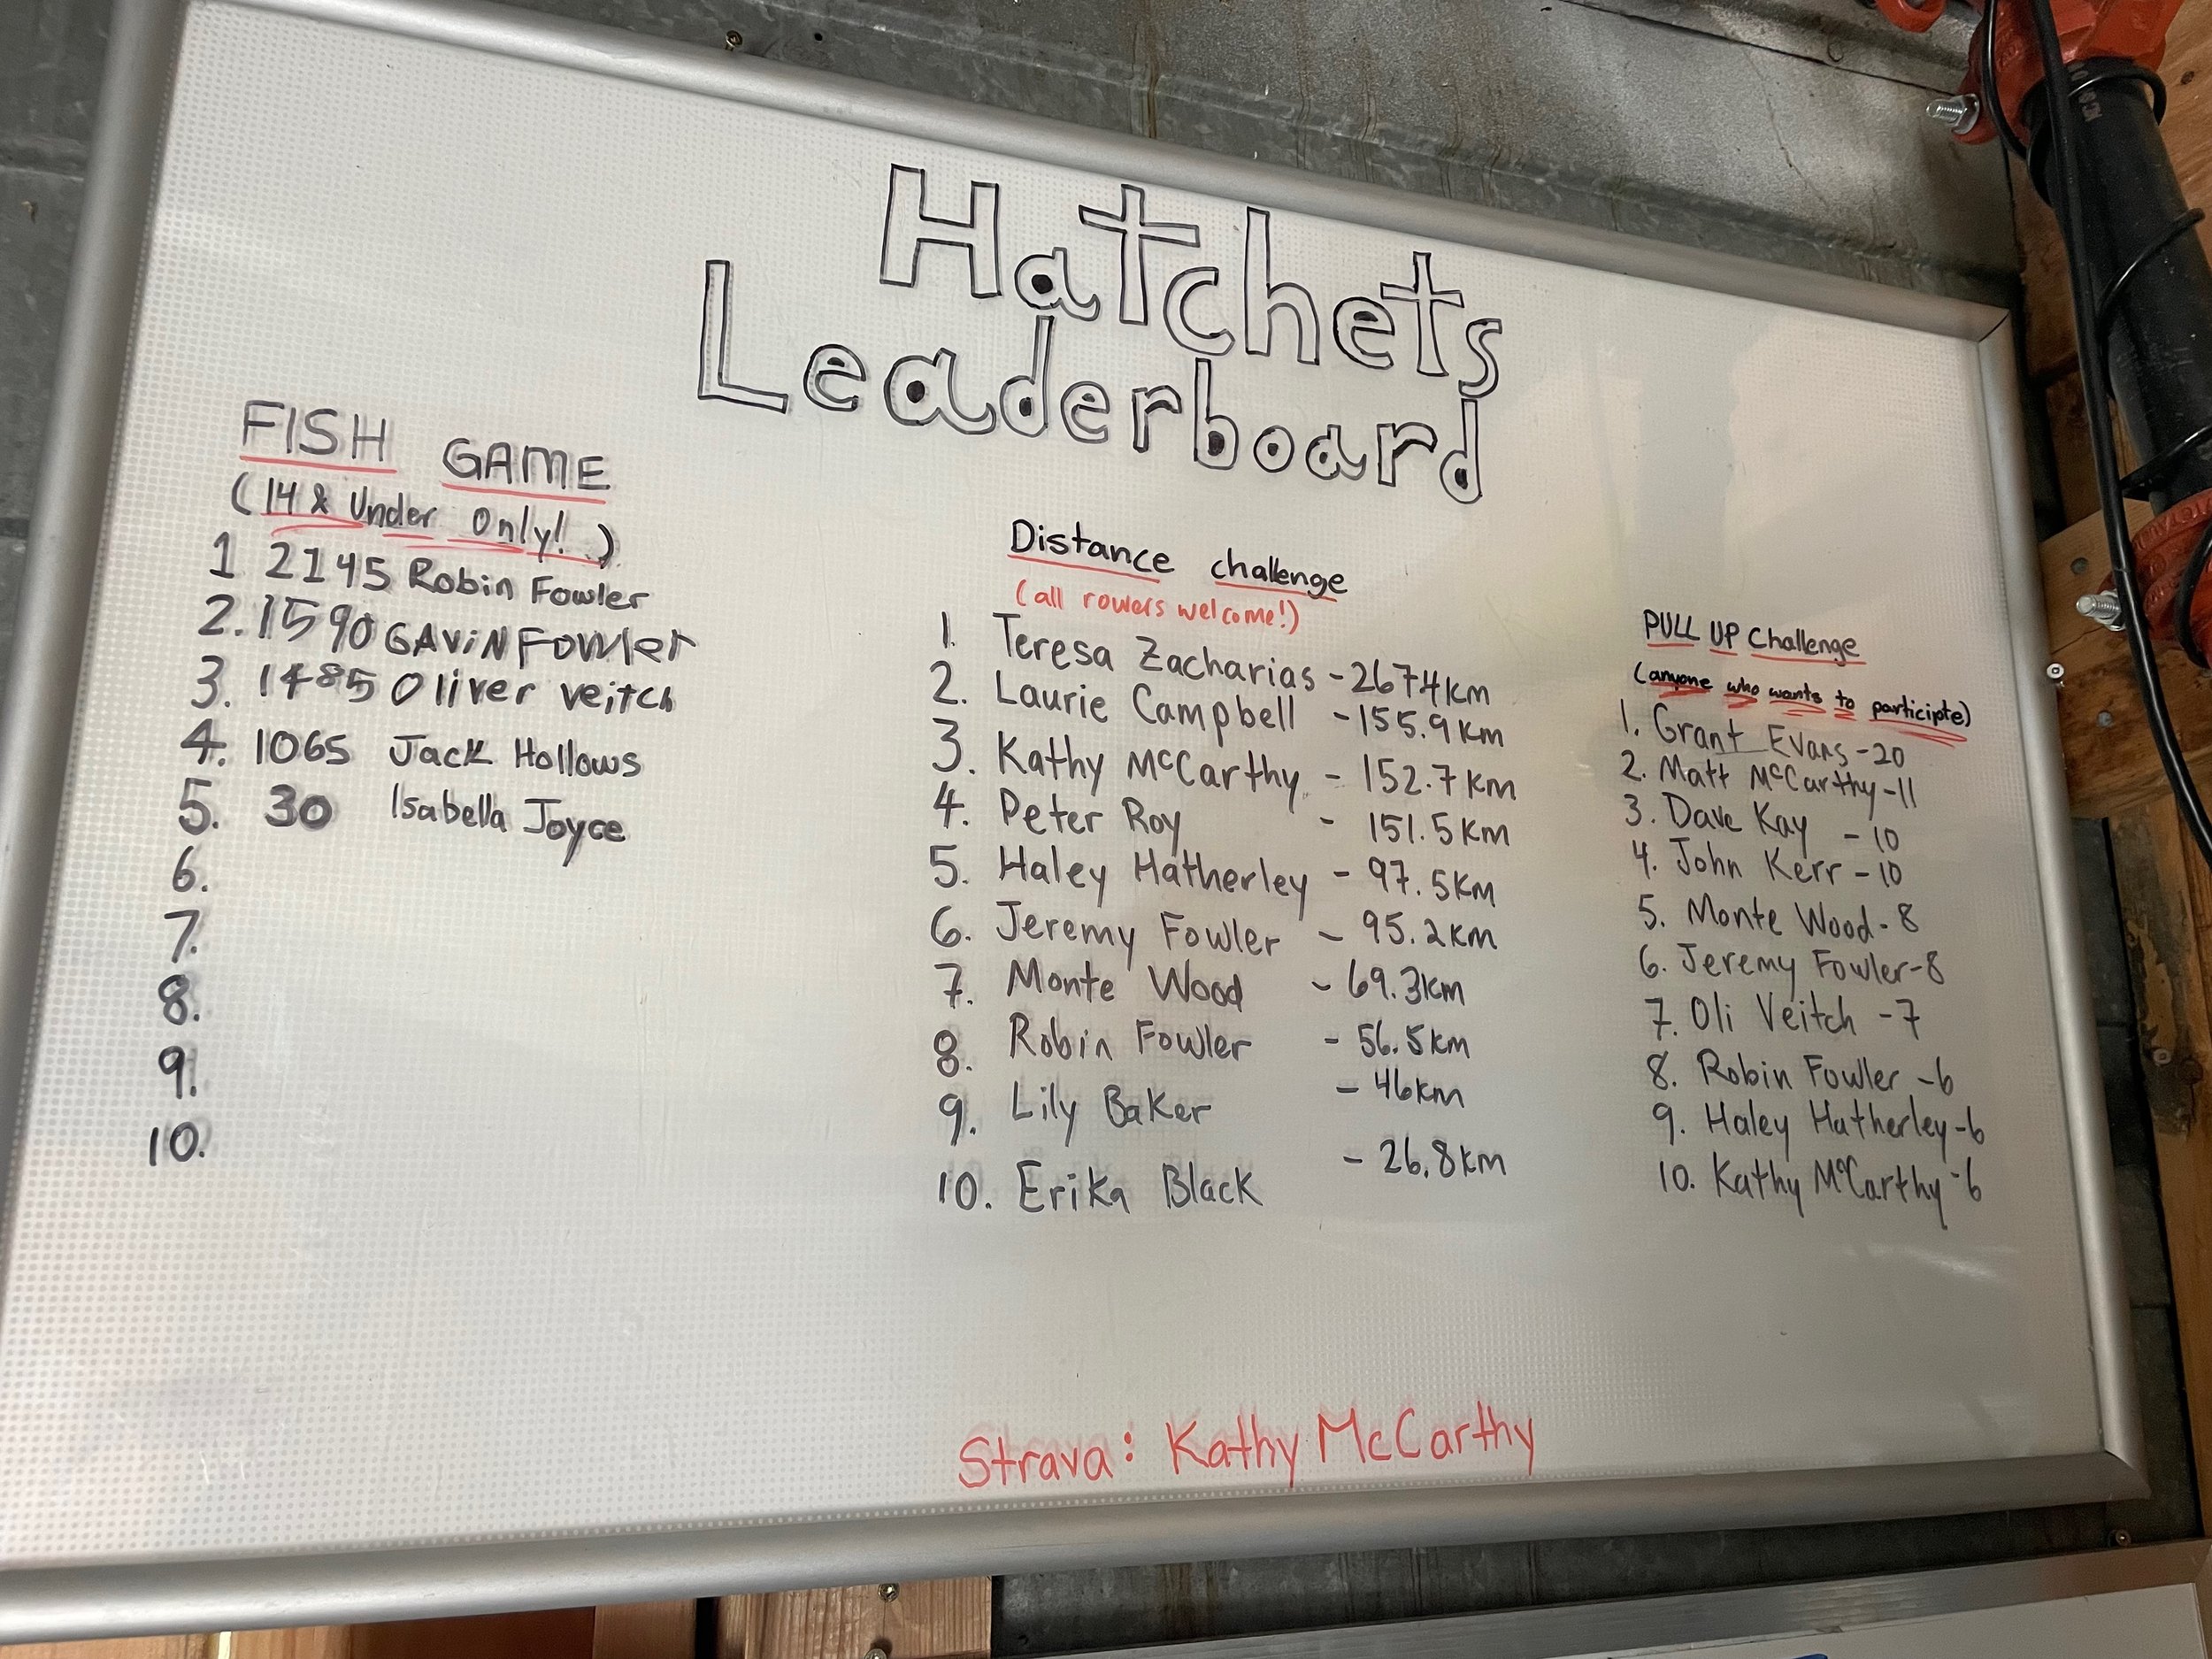 Hatchets
Leaderboard
FISH GAME
(14 & Under Only!)
1 2145 Robin Fowler
2. 1590 GAViN FOWler
3. 1485 Oliver Veitch
4. 1065 Jack Hollows
5. 30 Isabella Joyce
6.
7.
8.
9.
10.
Distance challenge
(all rowers welcome!)
1. Teresa Zacharias - 267.4km
2. Laurie Campbell - 155.9km
3. Kathy McCarthy - 152.7km
4. Peter Roy - 151.5km
5. Haley Hatherley - 97.5km
6. Jeremy Fowler - 95.2km
7. Monte Wood - 69.3km
8. Robin Fowler - 56.5km
9. Lily Baker - 46km
10. Erika Black - 26.8km
PULL UP Challenge
(anyone who wants to participte)
1. Grant Evans - 20
2. Matt McCarthy - 11
3. Dave Kay - 10
4. John Kerr - 10
5. Monte Wood - 8
6. Jeremy Fowler - 8
7. Oli Veitch - 7
8. Robin Fowler - 6
9. Haley Hatherley - 6
10. Kathy McCarthy - 6
Strava: Kathy McCarthy